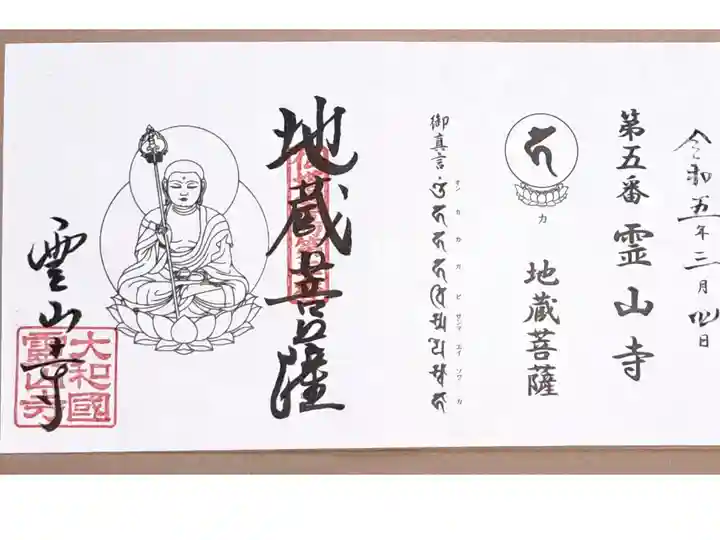 令和五年三月 日
第五番 霊山寺
カ
地蔵菩薩
御真言
オン カ カ カ ビ サンマ エイ ソワ カ
地蔵菩薩
霊山寺
大和國
霊山寺